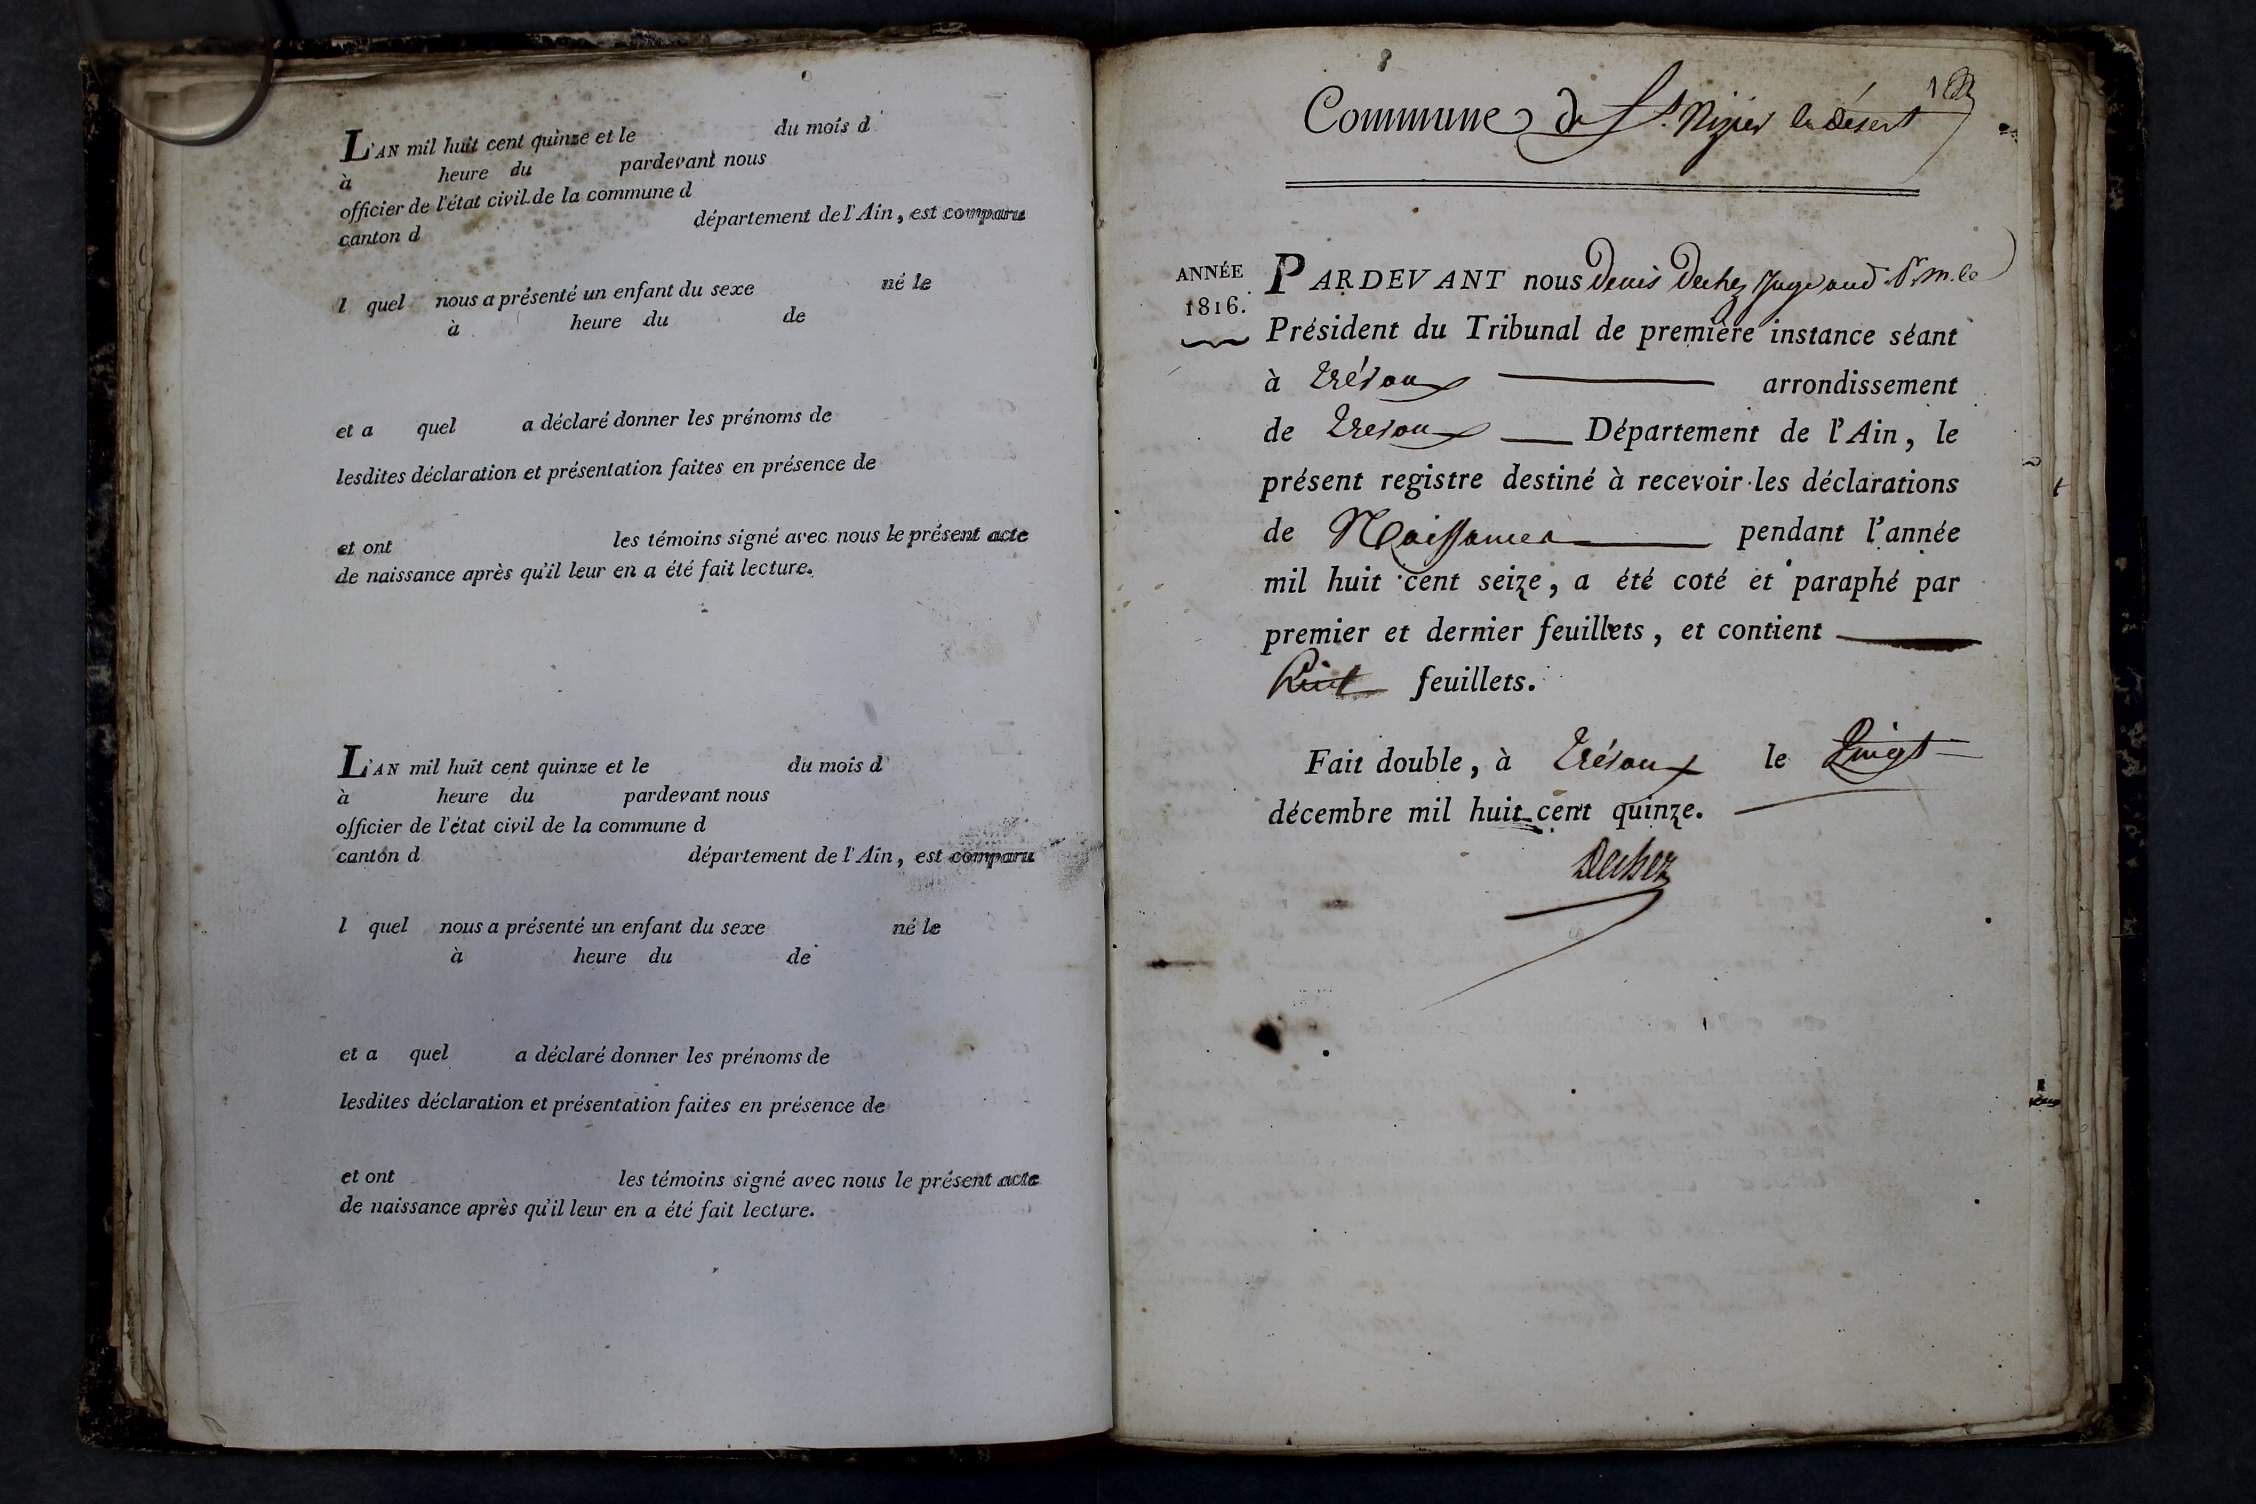 L'AN mil huit cent quinze et le du mois d
à heure du pardevant nous
officier de l'état civil de la commune d
canton d département de l'Ain, est comparu
l quel nous a présenté un enfant du sexe né le
à heure du de
et a quel a déclaré donner les prénoms de
lesdites déclaration et présentation faites en présence de
et ont les témoins signé avec nous le présent acte
de naissance après qu'il leur en a été fait lecture.
L'AN mil huit cent quinze et le du mois d
à heure du pardevant nous
officier de l'état civil de la commune d
canton d département de l'Ain, est comparu
l quel nous a présenté un enfant du sexe né le
à heure du de
et a quel a déclaré donner les prénoms de
lesdites déclaration et présentation faites en présence de
et ont les témoins signé avec nous le présent acte
de naissance après qu'il leur en a été fait lecture.
Commune de St. Nizier le désert
ANNÉE
1816.
PARDEVANT nous Denis Dechez Juge
Président du Tribunal de première instance séant
à Trévoux arrondissement
de Trevoux Département de l'Ain, le
présent registre destiné à recevoir les déclarations
de Naissances pendant l'année
mil huit cent seize, a été coté et paraphé par
premier et dernier feuillets, et contient
huit feuillets.
Fait double, à Trévoux le Vingt
décembre mil huit cent quinze.
Dechez